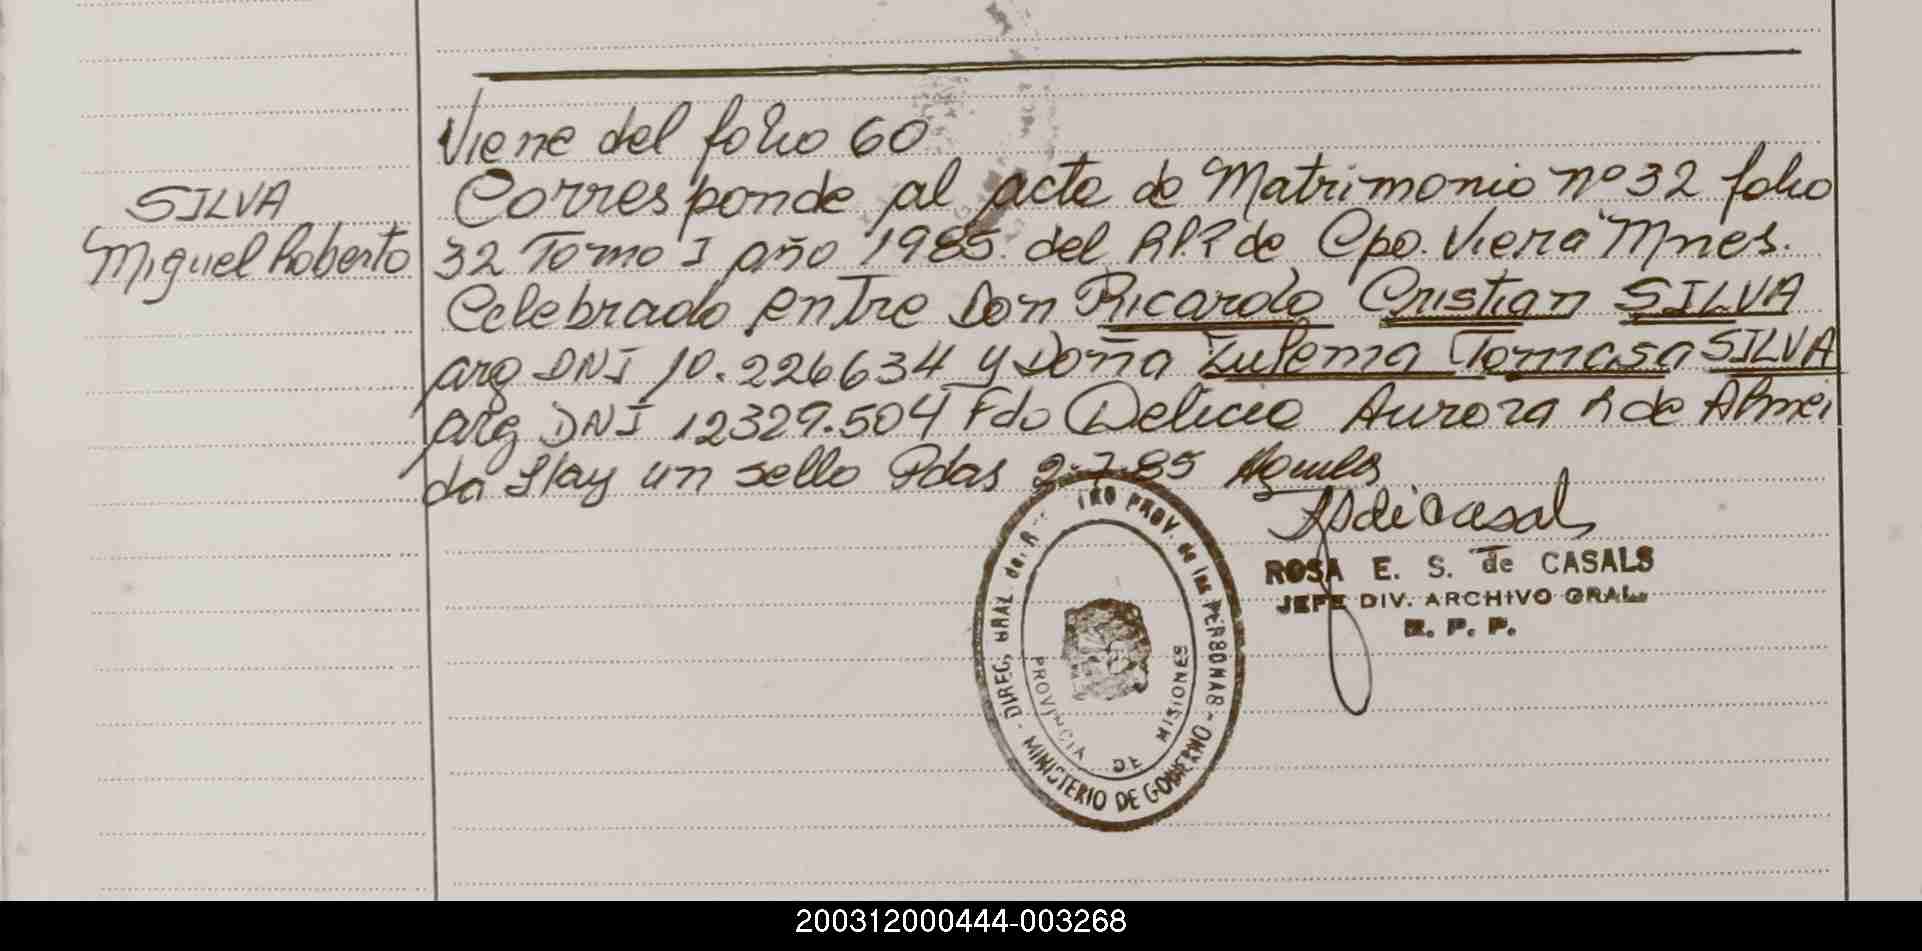 Viene del folio 60
SILVA
Miguel Roberto
Corresponde al acta de Matrimonio nº 32 folio
32 Tomo I año 1985. del R.P.P de Cpo. Viera Mnes.
Celebrado entre Don Ricardo Cristian SILVA
arg DNI 10.226634 y Doña Zulema Tomasa SILVA
arg DNI 12329.504 Fdo Delicia Aurora R de Almei
da Hay un sello Pdas 2-7-85
DIREC. GRAL del PROV. de las PERSONAS - MINISTERIO DE GOBIERNO -
PROVINCIA DE MISIONES
ROSA E. S. de CASALS
JEFE DIV. ARCHIVO GRAL.
R. P. P.
200312000444-003268